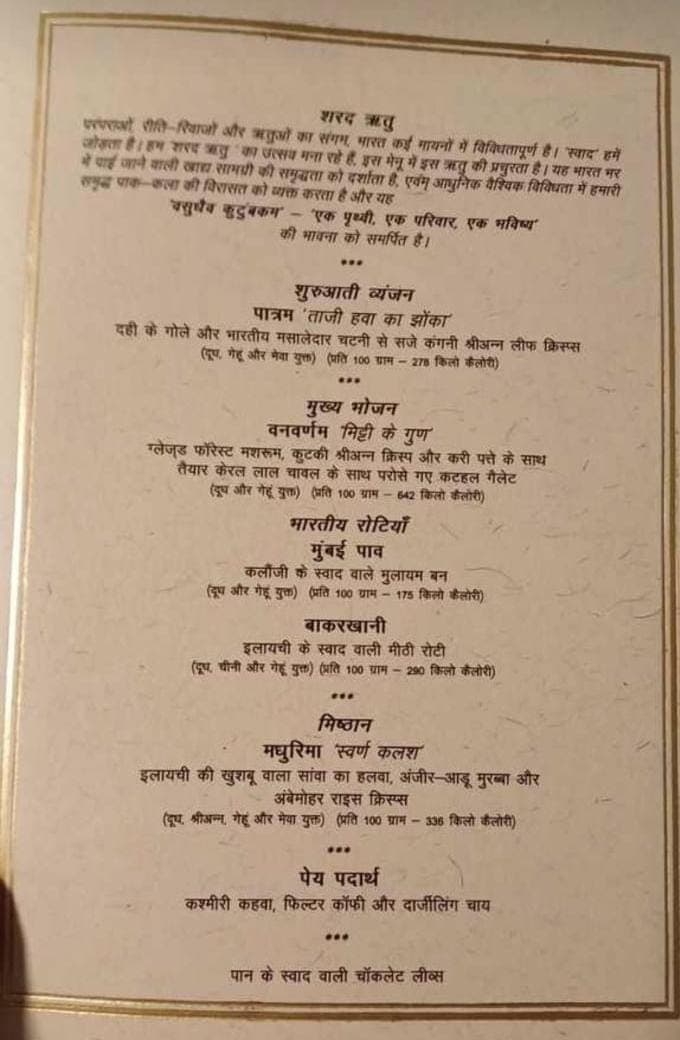 शरद ऋतु
परंपराओं, रीति–रिवाजों और ऋतुओं का संगम, भारत कई मायनों में विविधतापूर्ण है। 'स्वाद' हमें
जोड़ता है। हम 'शरद ऋतु ' का उत्सव मना रहे हैं, इस मेनू में इस ऋतु की प्रचुरता है। यह भारत भर
में पाई जाने वाली खाद्य सामग्री की समृद्धता को दर्शाता है, एवंम् आधुनिक वैश्विक विविधता में हमारी
समृद्ध पाक–कला की विरासत को व्यक्त करता है और यह
'वसुधैव कुटुंबकम' – 'एक पृथ्वी, एक परिवार, एक भविष्य'
की भावना को समर्पित है।
***
शुरुआती व्यंजन
पात्रम 'ताजी हवा का झोंका'
दही के गोले और भारतीय मसालेदार चटनी से सजे कंगनी श्रीअन्न लीफ क्रिस्प्स
(दूध, गेहूं और मेवा युक्त) (प्रति 100 ग्राम – 278 किलो कैलोरी)
***
मुख्य भोजन
वनवर्णम 'मिट्टी के गुण'
ग्लेज़्ड फॉरेस्ट मशरूम, कुटकी श्रीअन्न क्रिस्प और करी पत्ते के साथ
तैयार केरल लाल चावल के साथ परोसे गए कटहल गैलेट
(दूध और गेहूं युक्त) (प्रति 100 ग्राम – 642 किलो कैलोरी)
भारतीय रोटियाँ
मुंबई पाव
कलौंजी के स्वाद वाले मुलायम बन
(दूध और गेहूं युक्त) (प्रति 100 ग्राम – 175 किलो कैलोरी)
बाकरखानी
इलायची के स्वाद वाली मीठी रोटी
(दूध, चीनी और गेहूं युक्त) (प्रति 100 ग्राम – 290 किलो कैलोरी)
***
मिष्ठान
मधुरिमा 'स्वर्ण कलश'
इलायची की खुशबू वाला सांवा का हलवा, अंजीर-आडू मुरब्बा और
अंबेमोहर राइस क्रिस्प्स
(दूध, श्रीअन्न, गेहूं और मेवा युक्त) (प्रति 100 ग्राम – 336 किलो कैलोरी)
***
पेय पदार्थ
कश्मीरी कहवा, फिल्टर कॉफी और दार्जीलिंग चाय
***
पान के स्वाद वाली चॉकलेट लीव्स